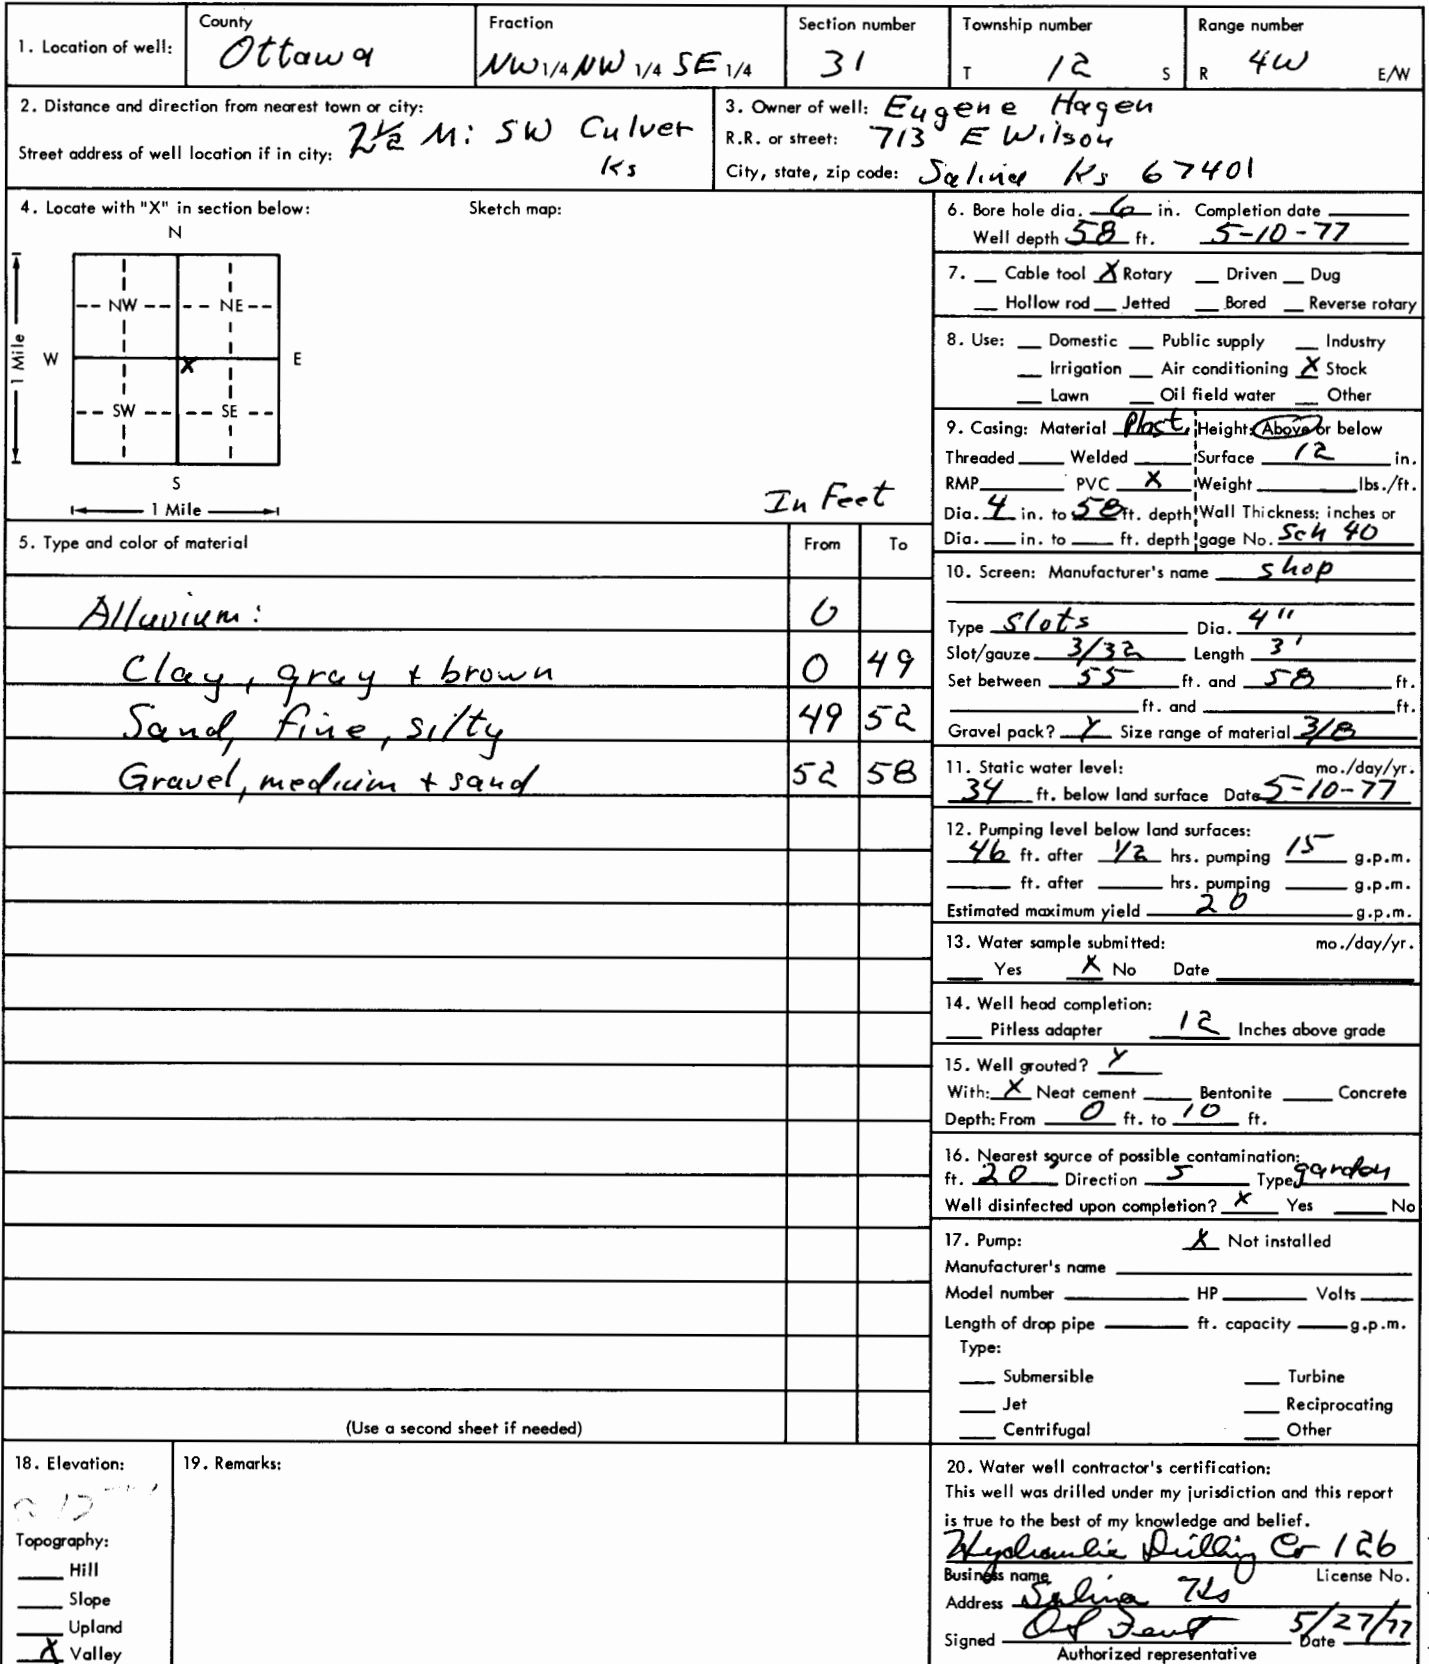 1. Location of well: County Ottawa Fraction NW 1/4 NW 1/4 SE 1/4 Section number 31 Township number T 12 S Range number R 4W E/W
2. Distance and direction from nearest town or city: 2½ Mi SW Culver Ks
Street address of well location if in city:
3. Owner of well: Eugene Hagen
R.R. or street: 713 E Wilson
City, state, zip code: Salina Ks 67401
4. Locate with "X" in section below: Sketch map:
N
NW NE
W X E
SW SE
S
1 Mile
1 Mile
In Feet
5. Type and color of material From To
Alluvium: 0
Clay, gray + brown 0 49
Sand, fine, silty 49 52
Gravel, medium + sand 52 58
(Use a second sheet if needed)
6. Bore hole dia. 6 in. Completion date
Well depth 58 ft. 5-10-77
7. Cable tool X Rotary Driven Dug
Hollow rod Jetted Bored Reverse rotary
8. Use: Domestic Public supply Industry
Irrigation Air conditioning X Stock
Lawn Oil field water Other
9. Casing: Material Plast. Height: Above or below
Threaded Welded Surface 12 in.
RMP PVC X Weight lbs./ft.
Dia. 4 in. to 58 ft. depth Wall Thickness: inches or
Dia. in. to ft. depth gage No. Sch 40
10. Screen: Manufacturer's name shop
Type Slots Dia. 4"
Slot/gauze 3/32 Length 3'
Set between 55 ft. and 58 ft.
ft. and ft.
Gravel pack? Y Size range of material 3/8
11. Static water level: mo./day/yr.
34 ft. below land surface Date 5-10-77
12. Pumping level below land surfaces:
46 ft. after 1/2 hrs. pumping 15 g.p.m.
ft. after hrs. pumping g.p.m.
Estimated maximum yield 20 g.p.m.
13. Water sample submitted: mo./day/yr.
Yes X No Date
14. Well head completion:
Pitless adapter 12 Inches above grade
15. Well grouted? Y
With: X Neat cement Bentonite Concrete
Depth: From 0 ft. to 10 ft.
16. Nearest source of possible contamination:
ft. 20 Direction S Type garden
Well disinfected upon completion? X Yes No
17. Pump: X Not installed
Manufacturer's name
Model number HP Volts
Length of drop pipe ft. capacity g.p.m.
Type:
Submersible Turbine
Jet Reciprocating
Centrifugal Other
18. Elevation:
Topography:
Hill
Slope
Upland
X Valley
19. Remarks:
20. Water well contractor's certification:
This well was drilled under my jurisdiction and this report
is true to the best of my knowledge and belief.
Hydraulic Drilling Co 126
Business name License No.
Address Salina Ks
Signed Date 5/27/77
Authorized representative